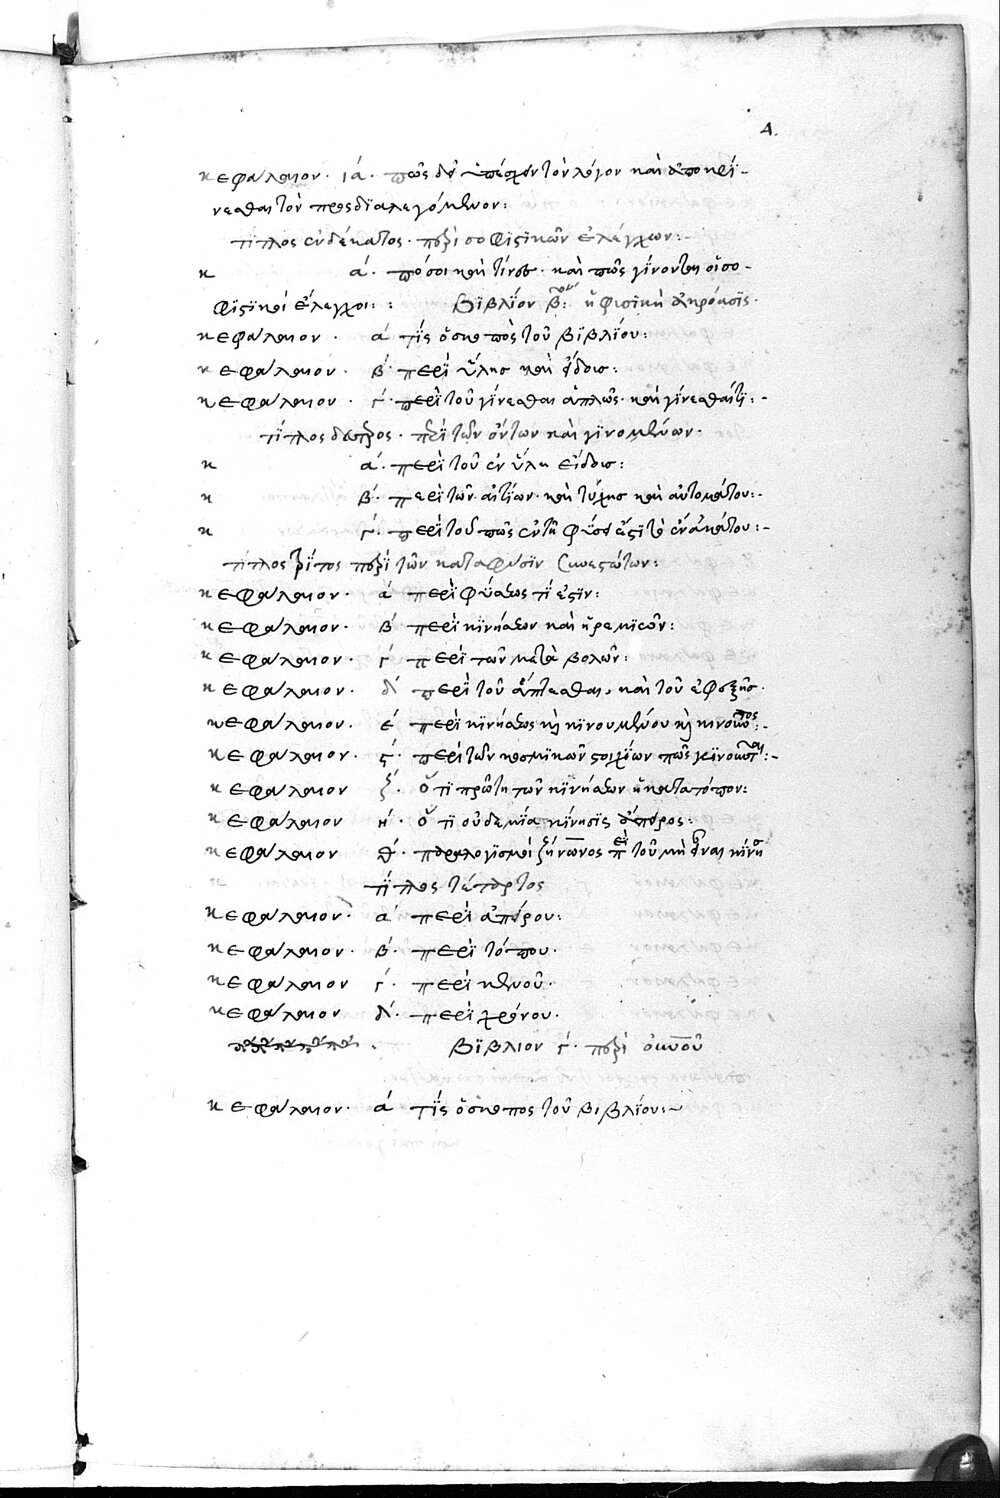 Δ.
κεφάλαιον· ιά· πῶς δεῖ ὑπέχειν τὸν λόγον καὶ ἀποκρί-
νεσθαι τὸν προσδιαλεγόμενον:
τίτλος ἑνδέκατος· περὶ σοφιστικῶν ἐλέγχων:-
κ ά· πόσοι καὶ τίνες· καὶ πῶς γίνονται οἱ σο-
φιστικοὶ ἔλεγχοι: : Βιβλίον β: ἡ φυσικὴ ἀκρόασις·
κεφάλαιον· ά τίς ὁ σκοπὸς τοῦ βιβλίου:
κεφάλαιον· β· περὶ ὕλης καὶ εἴδους:
κεφάλαιον· γ· περὶ τοῦ γίνεσθαι ἁπλῶς· καὶ γίνεσθαί τι:-
τίτλος δεύτερος· περὶ τῶν ὄντων καὶ γινομένων·
κ ά· περὶ τοῦ ἐν ὕλη εἴδους:
κ β· περὶ τῶν αἰτίων· καὶ τύχης καὶ αὐτομάτου:-
κ γ· περὶ τοῦ πῶς ἐν τῆ φύσει ἐστὶ τὸ
τίτλος τρίτος περὶ τῶν κατὰ φύσιν
κεφάλαιον· ά περὶ φύσεως τί ἐστιν:
κεφάλαιον· β περὶ κινήσεων καὶ ἠρεμιῶν:
κεφάλαιον· γ περὶ τῶν μεταβολῶν:
κεφάλαιον· δ περὶ τοῦ ἅπτεσθαι, καὶ τοῦ ἐφεξῆς·
κεφάλαιον· έ περὶ κινήσεως καὶ κινουμένου καὶ κινοῦντος:-
κεφάλαιον· ϛ· περὶ τῶν κοσμικῶν στοιχείων πῶς κινοῦνται:-
κεφάλαιον ζ· ὅτι πρώτη τῶν κινήσεων ἡ κατὰ τόπον:
κεφάλαιον ή· ὅτι οὐδεμία κίνησις ἄπειρος:
κεφάλαιον θ· παραλογισμοὶ ζήνωνος περὶ τοῦ μὴ εἶναι κίνησ
τίτλος τέταρτος
κεφάλαιον· ά περὶ ἀπείρου:
κεφάλαιον· β· περὶ τόπου·
κεφάλαιον γ· περὶ κενοῦ·
κεφάλαιον δ· περὶ χρόνου·
Βιβλίον γ· περὶ οὐρανοῦ
κεφάλαιον· ά τίς ὁ σκοπὸς τοῦ βιβλίου:~